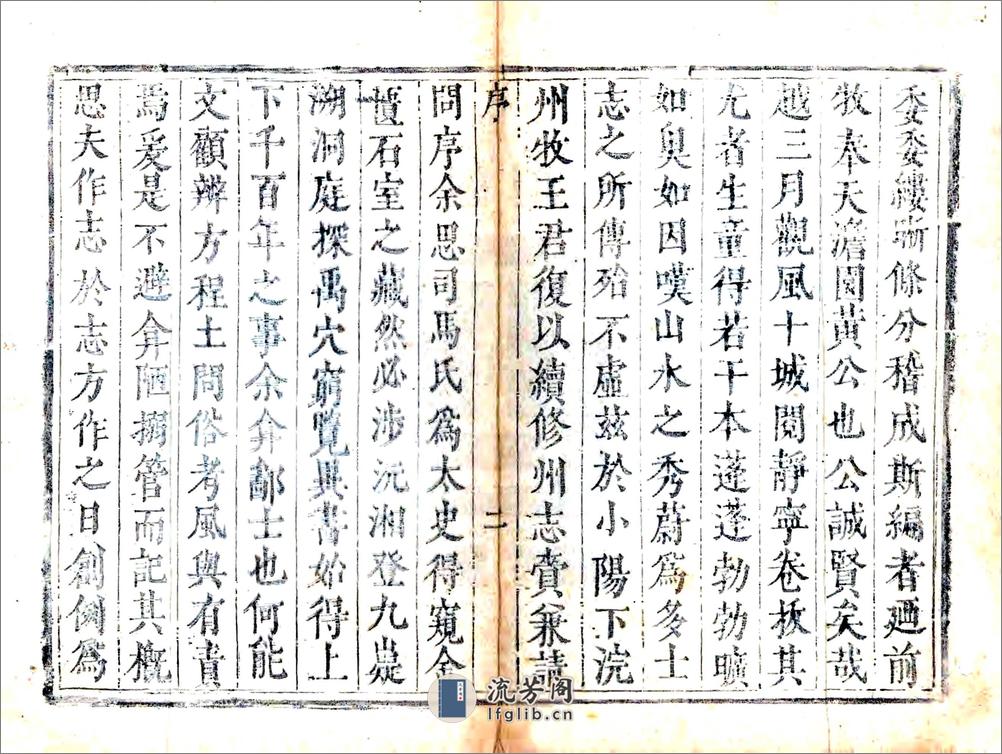 委委縷晰條分稽成斯編者廼前
牧奉天澹園黃公也公誠賢矣哉
越三月觀風十城閱靜寧卷拔其
尤者生童得若干本蓬蓬勃勃曠
如臭如因嘆山水之秀蔚為多士
志之所傳殆不虛茲於小陽下浣
州牧王君復以續修州志賫兼請
序 二
問序余思司馬氏為太史得窺金
匱石室之藏然必涉沅湘登九嶷
溯洞庭探禹穴窮覽異書始得上
下千百年之事余弇鄙士也何能
文顧辨方程土問俗考風與有責
焉爰是不避弇陋搦管而記其概
思夫作志於志方作之日創例為
流芳閣
lfglib.cn